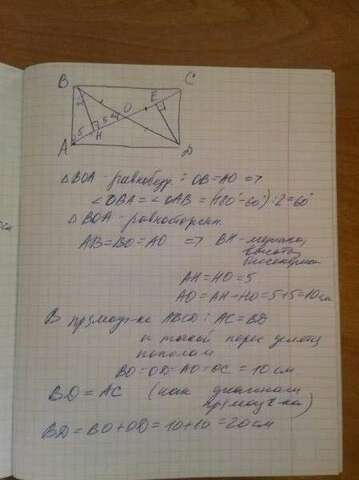 B C
E
O
5 5
A H D
△BOA - равнобедр: OB=AO =>
∠OBA = ∠OAB = (180°-60°):2=60°
△BOA - равносторон.
AB=BO=AO => BH - медиана,
высота,
биссектриса
AH=HO=5
AO=AH+HO=5+5=10см
В прямоуг-ке ABCD: AC=BD
и точкой перес. делятся
пополам
BO=OD=AO=OC=10см
BD=AC (как диагонали
прямоуг-ка)
BD=BO+OD=10+10=20см